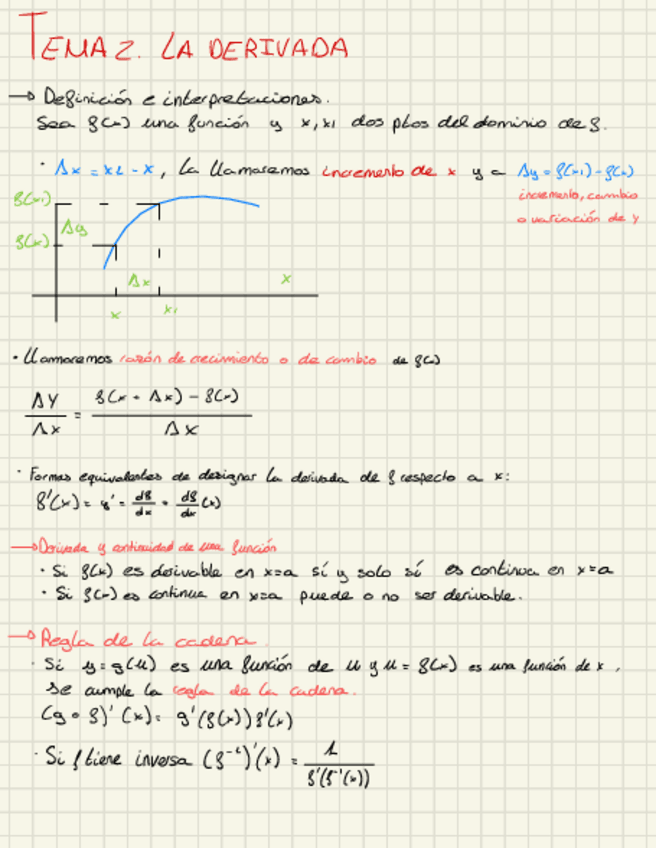 TEMA 2. LA DERIVADA
→ Definición e interpretaciones.
Sea f(x) una función y x, x1 dos ptos del dominio de f.
· Δx = x2 - x, la llamaremos incremento de x y a Δy = f(x1) - f(x)
incremento, cambio
o variación de y
f(x1)
Δy
f(x)
Δx
x
x
x1
· Llamaremos razón de crecimiento o de cambio de f(x)
ΔY/Δx = (f(x + Δx) - f(x))/Δx
· Formas equivalentes de designar la derivada de f respecto a x:
f'(x) = y' = df/dx = df/dx (x)
→ Derivada y continuidad de una función
· Si f(x) es derivable en x=a sí y solo sí es continua en x=a
· Si f(x) es continua en x=a puede o no ser derivable.
→ Regla de la cadena.
· Si y=g(u) es una función de u y u = f(x) es una función de x,
se cumple la regla de la cadena.
(g ∘ f)'(x) = g'(f(x)) f'(x)
· Si f tiene inversa (f⁻¹)'(x) = 1/f'(f⁻¹(x))